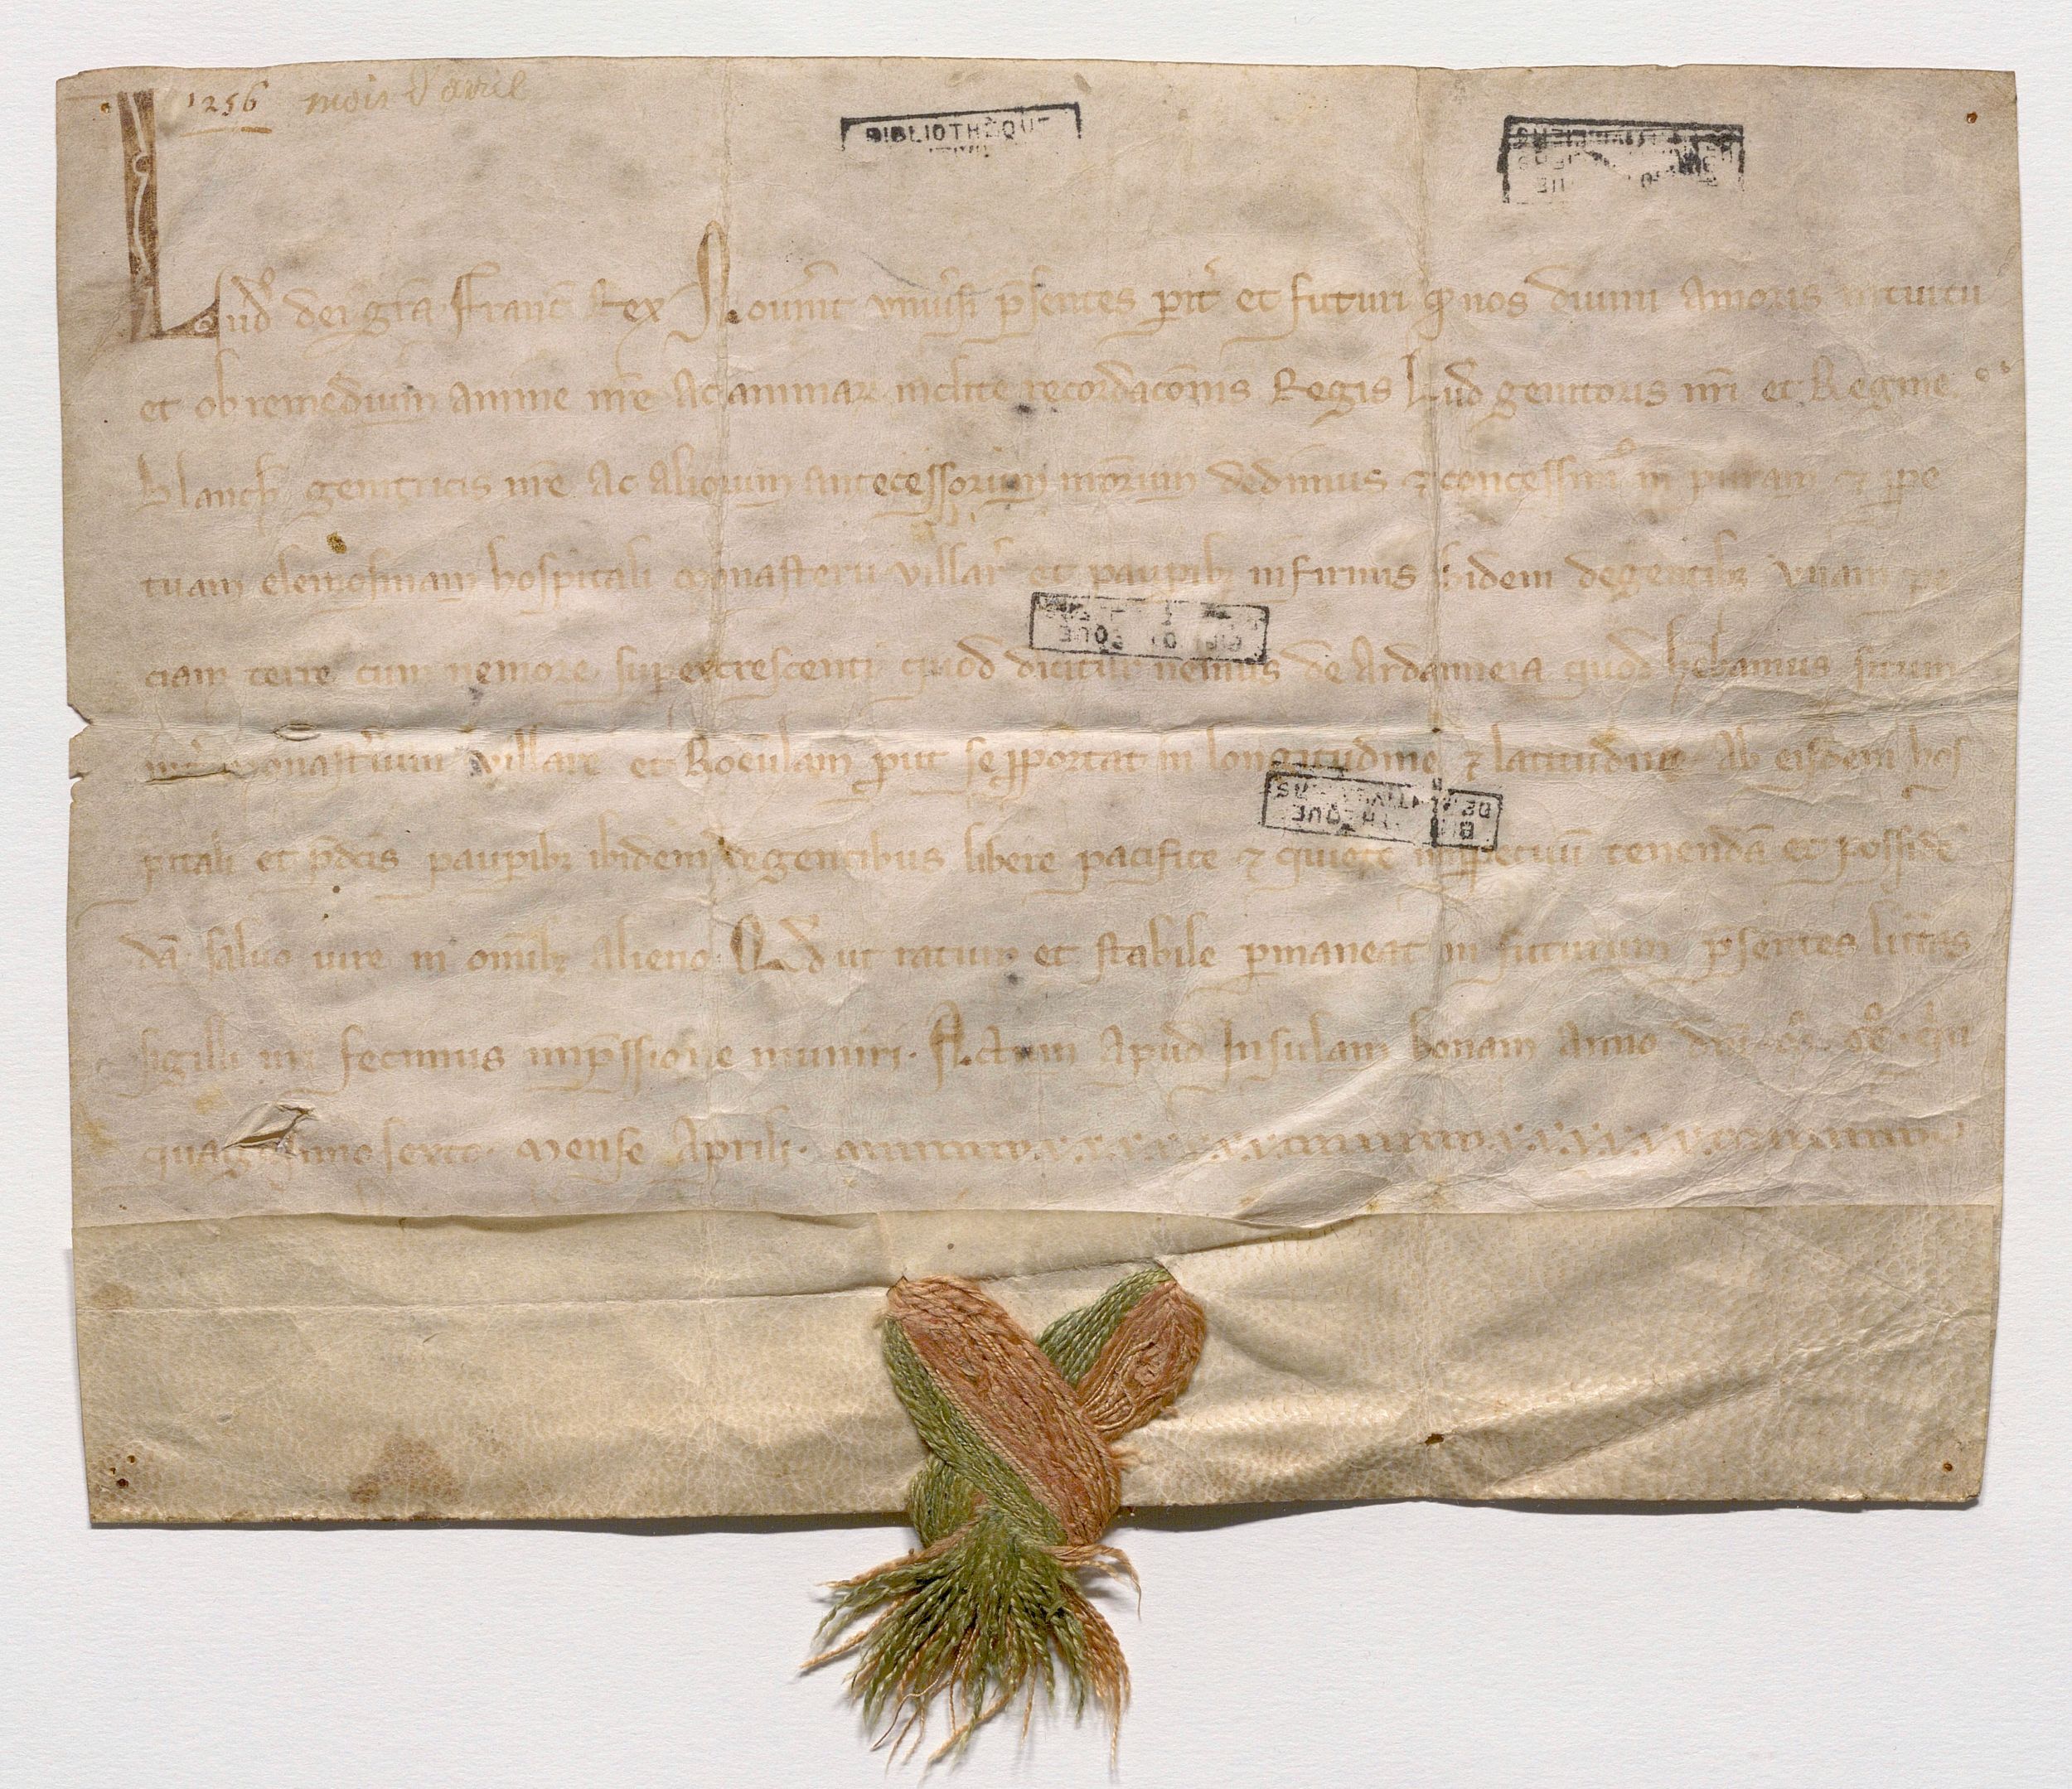 1256 mois d'avril
BIBLIOTHÈQUE
Lud̄ dei gr̄a Franc̄ Rex Noūint vniūsi p̄sentes pit̄ et futuri qd̄ nos diuini amoris intuitu
et ob remedium anime nr̄e ac animar̄ inclite recordac̄onis Regis Lud̄ genitoris nr̄i et Regine
Blanch̄ genitricis nr̄e ac aliorum antecessorum nr̄orum dedimus ⁊ concessim̄ in puram ⁊ ꝑpe
tuam elemosinam hospitali monasterii villar̄ et paupibꝫ infirmis ibidem degentibꝫ vnam pe
ciam terre cum nemore superexcrescenti quod dicitur nemus de Ardanneia quod hebamus situm
int̄ monast̄ium villare et Roeulam put se ꝓportat in longitudine ⁊ latitudine Ab eisdem hos
pitali et p̄dc̄is paupibꝫ ibidem degentibus libere pacifice ⁊ quiete inꝑpetuū tenendā et posside
dā saluo iure in om̄ibꝫ alieno Qd̄ ut ratum et stabile ꝑmaneat in futurum p̄sentes litt̄as
sigilli nr̄i fecimus imp̄ssione muniri. Actum apud Insulam bonam anno dn̄i
quagesimo sexto. mense Aprili.